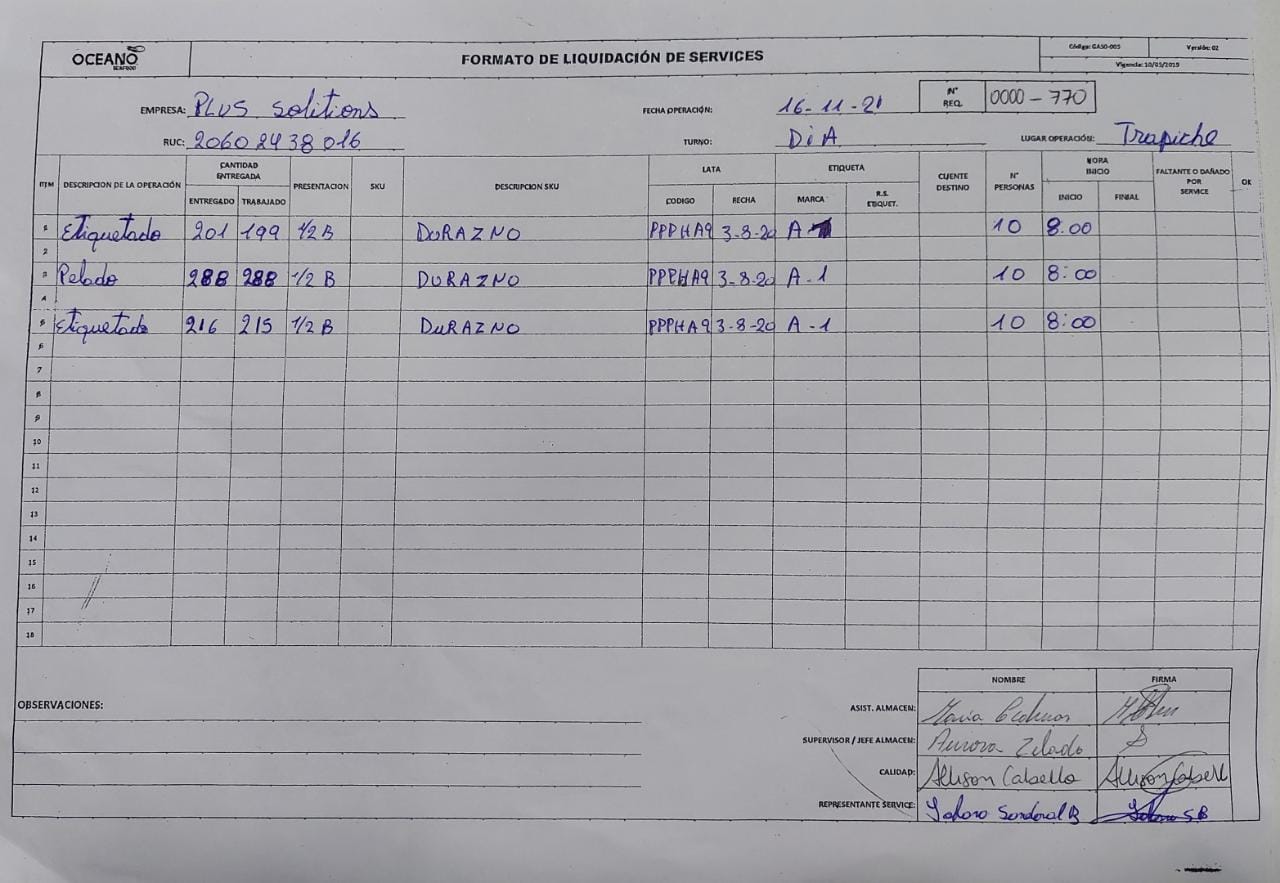 OCEANO
SEAFOOD
FORMATO DE LIQUIDACIÓN DE SERVICES
Código: GASO-005 Versión: 02
Vigencia: 10/05/2019
EMPRESA: PLUS Solitions FECHA OPERACIÓN: 16-11-21 N° REQ. 0000-770
RUC: 20602438016 TURNO: DiA LUGAR OPERACIÓN: Trapiche
ITM DESCRIPCION DE LA OPERACIÓN CANTIDAD ENTREGADA PRESENTACION SKU DESCRIPCION SKU LATA ETIQUETA CLIENTE DESTINO N° PERSONAS HORA INICIO FALTANTE O DAÑADO POR SERVICE OK
ENTREGADO TRABAJADO CODIGO FECHA MARCA R.S. ETIQUET. INICIO FINIAL
1 Etiquetado 201 199 1/2 B DURAZNO PPPHA9 3-8-20 A 10 8:00
2
3 Pelado 288 288 1/2 B DURAZNO PPPHA9 3-8-20 A-1 10 8:00
4
5 Etiquetado 216 215 1/2 B DuRAZNO PPPHA9 3-8-20 A-1 10 8:00
6
7
8
9
10
11
12
13
14
15
16
17
18
NOMBRE FIRMA
OBSERVACIONES:
ASIST. ALMACEN: Maria
SUPERVISOR / JEFE ALMACEN: Aurora Zelado
CALIDAD: Allison Cabello Allison
REPRESENTANTE SERVICE: Sandoval B